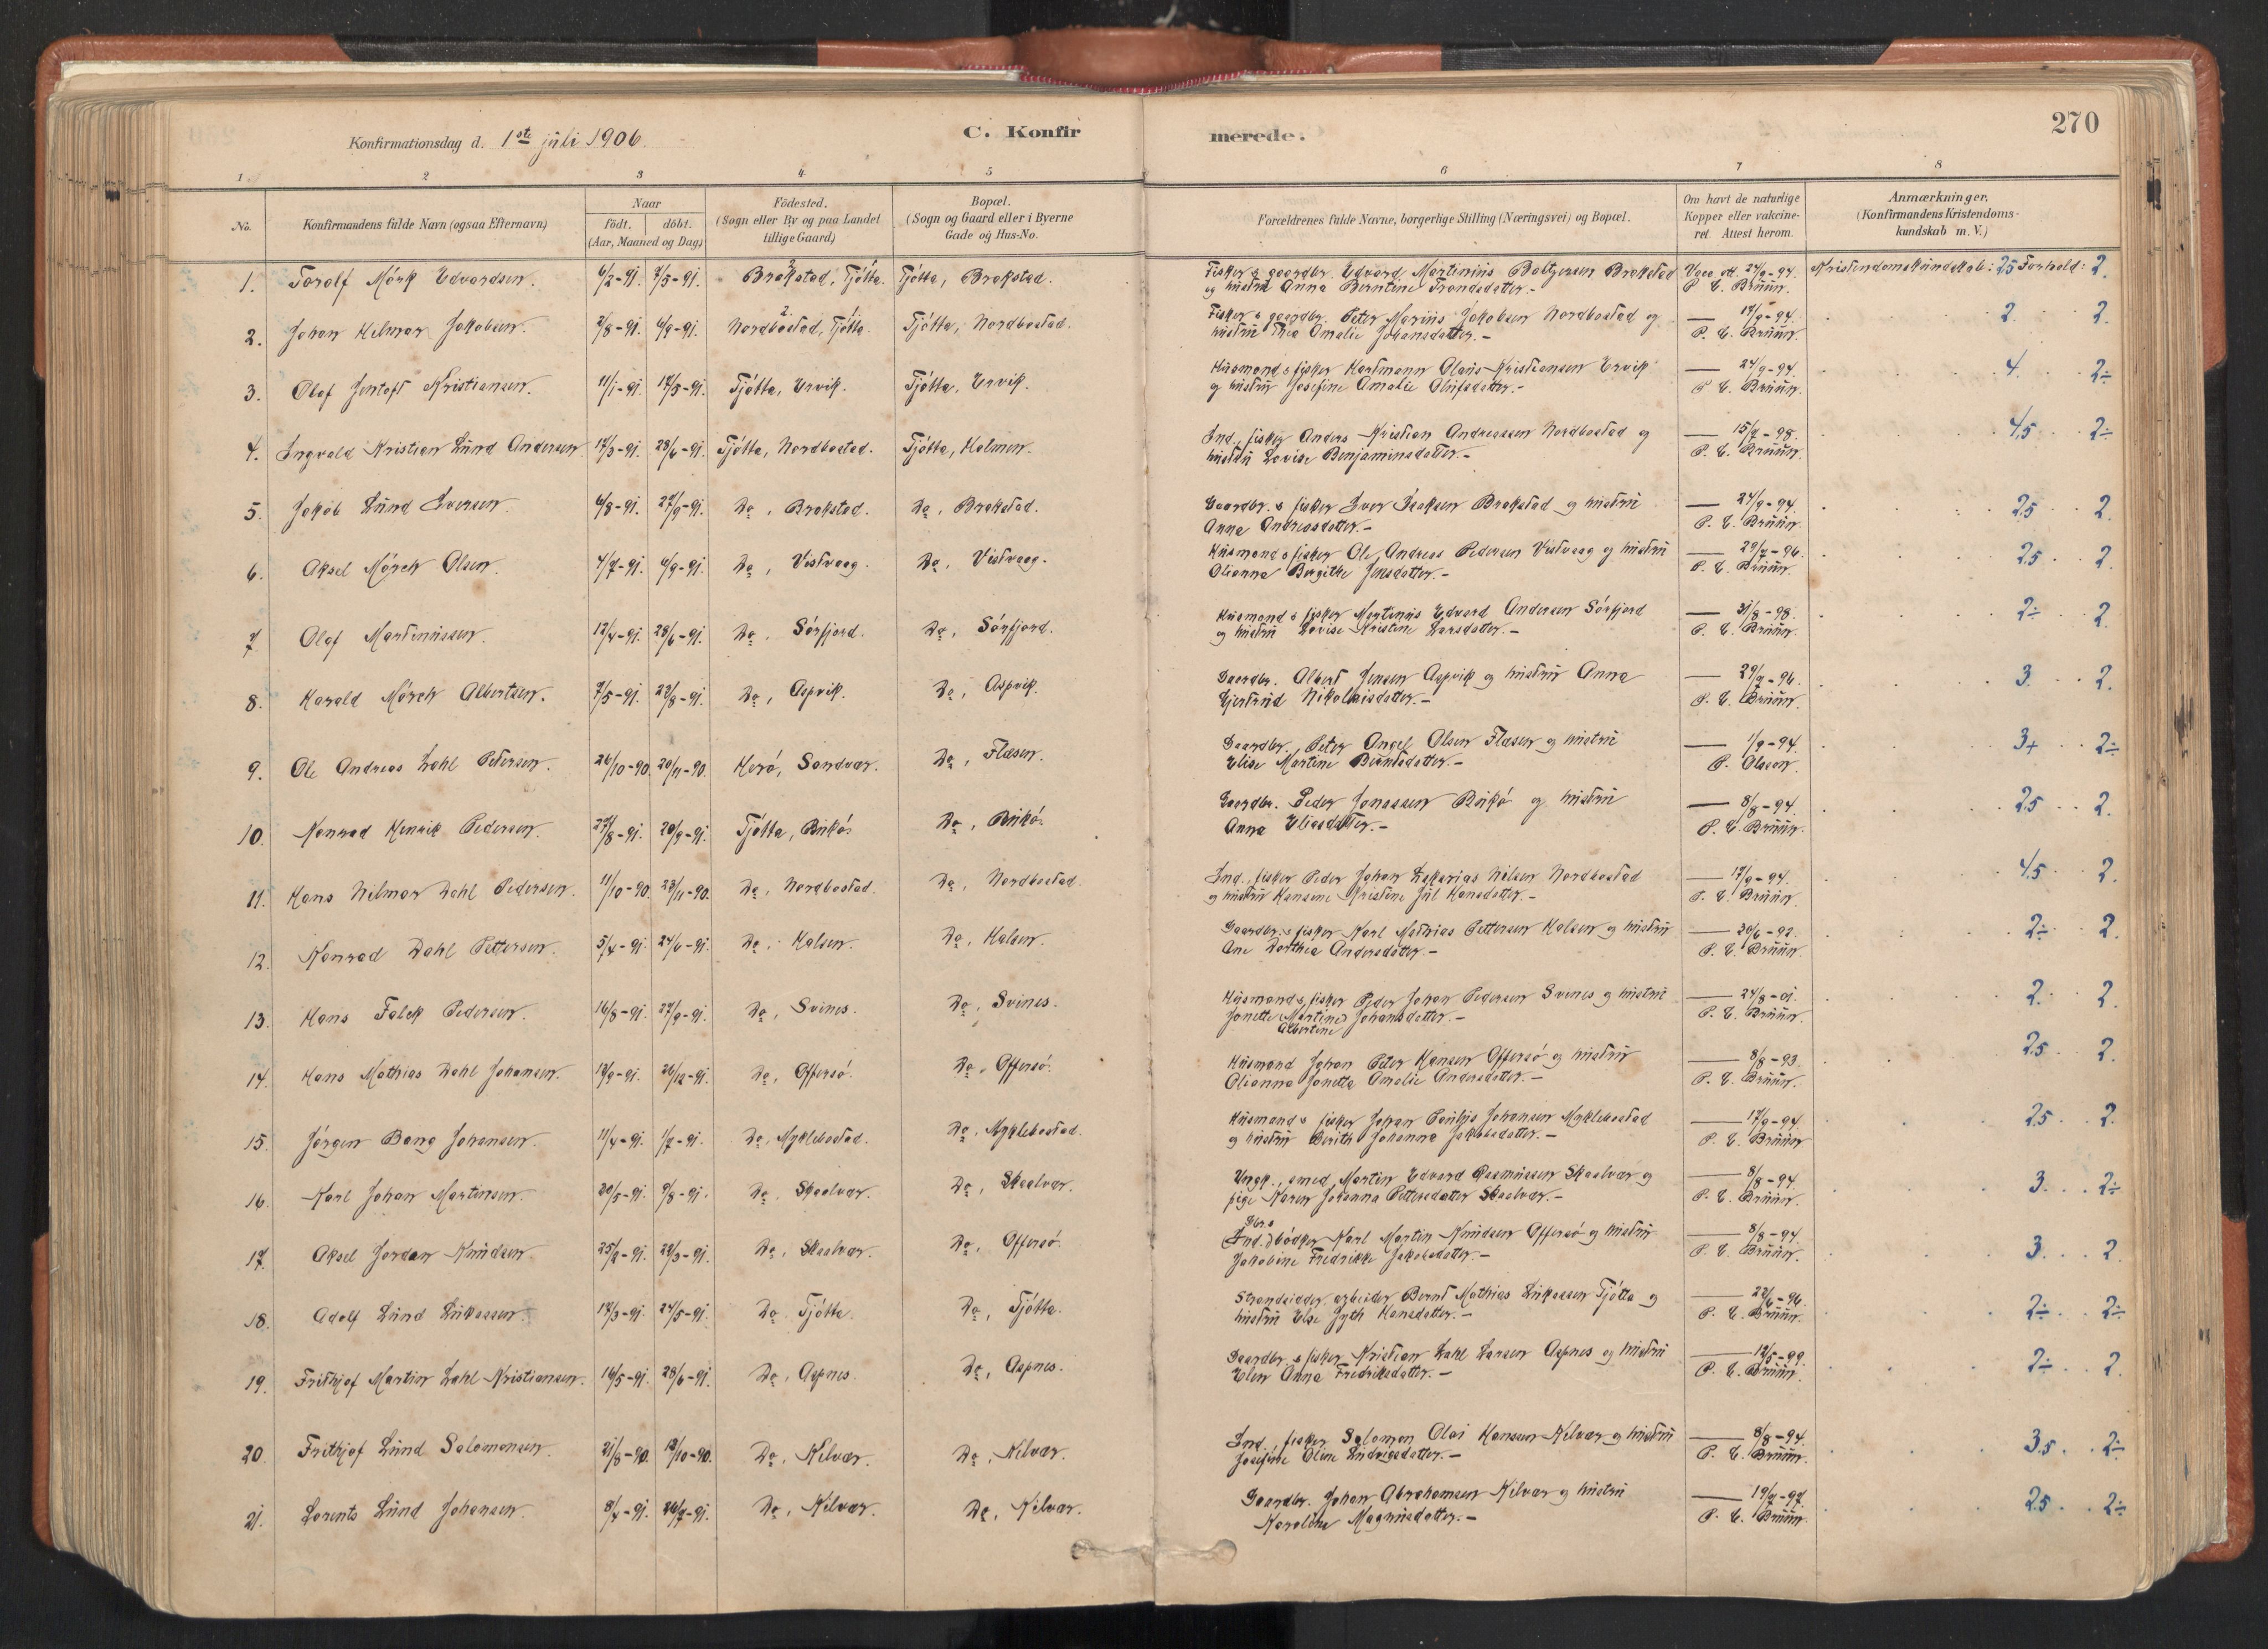 270
Konfirmationsdag d. 1ste juli 1906.
C. Konfirmerede.
1 2 3 4 5 6 7 8
No.
Konfirmandens fulde Navn (ogsaa Efternavn)
Naar
födt. döbt.
(Aar, Maaned og Dag)
Födested.
(Sogn eller By og paa Landet
tillige Gaard)
Bopæl.
(Sogn og Gaard eller i Byerne
Gade og Hus-No.
Forældrenes fulde Navne, borgerlige Stilling (Næringsvei) og Bopæl.
Om havt de naturlige
Kopper eller vakcine-
ret. Attest herom.
Anmærkninger,
(Konfirmandens Kristendoms-
kundskab m. V.)
1. Torolf Mörk Edvardsen. 6/2-91. 7/5-91. Brakstad, Tjötta. Tjötta, Brakstad. Fisker & gaardbr. Edvard Martinius Baltzersen Brakstad Vacc. att. 24/9-94. Kristendomskundskab: 2.5 Forhold: 2.
og hustru Anna Berntine Trondsdatter.- P. E. Bruun.
2. Johan Hilmar Jakobsen. 2/8-91. 6/9-91. Nordbostad, Tjötta. Tjötta, Nordbostad. Fisker & gaardbr. Peter Marius Jakobsen Nordbostad og 17/9-94. 2. 2.
hustru Thea Amalie Johansdatter.- P. E. Bruun.
3. Olaf Jentoft Kristiansen. 11/1-91. 17/5-91. Tjötta, Ervik. Tjötta, Ervik. Husmand & fisker Hartmann Olaus Kristiansen Ervik 24/9-94. 4. 2÷
og hustru Josefine Amalie Olufsdatter.- P. E. Bruun.
4. Ingvald Kristian Lund Andersen 17/3-91. 28/6-91. Tjötta, Nordbostad. Tjötta, Holmen. Ind., fisker Anders Kristian Andreassen Nordbostad og 15/7-98. 4.5 2÷
hustru Lovise Benjaminsdatter.- P. E. Bruun.
5. Jakob Lund Iversen. 6/8-91. 27/9-91. Do, Brakstad. Do, Brakstad. Gaardbr. & fisker Iver Isaksen Brakstad og hustru 24/9-94. 2.5 2.
Anna Andreasdatter.- P. E. Bruun.
6. Aksel Mörch Olsen. 4/7-91. 6/9-91. Do, Vistvaag. Do, Vistvaag. Husmand & fisker Ole Andreas Pedersen Vistvaag og hustru 29/7-96. 2.5 2.
Olianna Birgithe Jensdatter.- P. E. Bruun.
7. Olaf Martinussen. 12/4-91. 28/6-91. Do, Sörfjord. Do, Sörfjord. Husmand & fisker Martinus Edvard Andersen Sörfjord 31/8-98. 2÷ 2.
og hustru Lovise Kristine Larsdatter.- P. E. Bruun.
8. Harald Mörch Albertsen. 7/5-91. 23/8-91. Do, Aspvik. Do, Aspvik. Gaardbr. Albert Jensen Aspvik og hustru Anna 29/7-96. 3. 2.
Gjertrud Nikolaisdatter.- P. E. Bruun.
9. Ole Andreas Dahl Petersen. 26/10-90. 20/11-90. Herö, Sandvær. Do, Flæsen. Gaardbr. Peter Angel Olsen Flæsen og hustru 1/9-94. 3+ 2÷
Elise Martine Berntsdatter.- P. Olsson.
10. Konrad Henrik Pedersen. 27/8-91. 20/9-91. Tjötta, Bukö. Do, Bukö. Gaardbr. Peder Jonassen Bukö og hustru 8/8-94. 2.5 2.
Anna Eliasdatter.- P. E. Bruun.
11. Hans Hilmar Dahl Pedersen. 11/10-90. 23/11-90. Do, Nordbostad. Do, Nordbostad. Ind., fisker Peder Johan Zakarias Nilsen Nordbostad 17/9-94. 4.5 2.
og hustru Hansine Kristine Jul Hansdatter.- P. E. Bruun.
12. Konrad Dahl Pettersen. 5/4-91. 24/6-91. Do, Halsen. Do, Halsen. Gaardbr. & fisker Karl Mathias Pettersen Halsen og hustru 30/6-92. 2÷ 2.
Ane Dorthea Andersdatter.- P. E. Bruun.
13. Hans Falck Pedersen. 16/8-91. 27/9-91. Do, Svines. Do, Svines. Husmand & fisker Peder Johan Pedersen Svines og hustru 24/8-01. 2. 2.
Jonette (Martine) Johansdatter.- P. E. Bruun.
Albertine
14. Hans Mathias Dahl Johansen. 17/9-91. 26/12-91. Do, Offersö. Do, Offersö. Husmand Johan Peter Hansen Offersö og hustru 8/8-93. 2.5 2.
Olianna Jonetta Amalie Andersdatter.- P. E. Bruun.
15. Jörgen Bang Johansen. 11/4-91. 1/7-91. Do, Myklebostad. Do, Myklebostad. Husmand & fisker Johan Paulus Johansen Myklebostad 17/9-94. 2.5 2.
og hustru Berith Johanna Jakobsdatter.- P. E. Bruun
16. Karl Johan Martinsen. 20/5-91. 9/8-91. Do, Skaalvær. Do, Skaalvær. Ungk., smed, Martin Edvard Rasmussen Skaalvær og 8/8-94. 3. 2÷
pige Karen Johanna Pettersdatter Skaalvær.- P. E. Bruun.
17. Aksel Jordan Knudsen. 25/2-91. 29/3-91. Do, Skaalvær. Do, Offersö. Gbr. & (Ind.) bödker Karl Martin Knudsen Offersö og hustru 8/8-94. 3. 2.
Jakobine Fredrikke Jakobsdatter.- P. E. Bruun.
18. Adolf Lund Lukassen. 17/3-91. 24/5-91. Do, Tjötta. Do, Tjötta. Strandsidder, arbeider Bernt Mathias Lukassen Tjötta og 22/6-96. 2÷ 2÷
hustru Else Jyth Hansdatter.- P. E. Bruun.
19. Frithjof Martin Dahl Kristiansen. 16/5-91. 28/6-91. Do, Aspnes. Do, Aspnes. Gaardbr. & fisker Kristian Dahl Larsen Aspnes og hustru 12/5-99. 2÷ 2.
Elen Anna Fredriksdatter.- P. E. Bruun.
20. Frithjof Lund Salamonsen. 21/8-90. 12/10-90. Do, Kilvær. Do, Kilvær. Ind., fisker Salomon Olai Hansen Kilvær og hustru 8/8-94. 3.5 2÷
Josefine Oline Ludvigsdatter.- P. E. Bruun.
21. Lorents Lund Johansen. 8/4-91. 26/7-91. Do, Kilvær. Do, Kilvær. Gaardbr. Johan Abrahamsen Kilvær og hustru 19/7-97. 2.5 2÷
Karoline Magnusdatter.- P. E. Bruun.